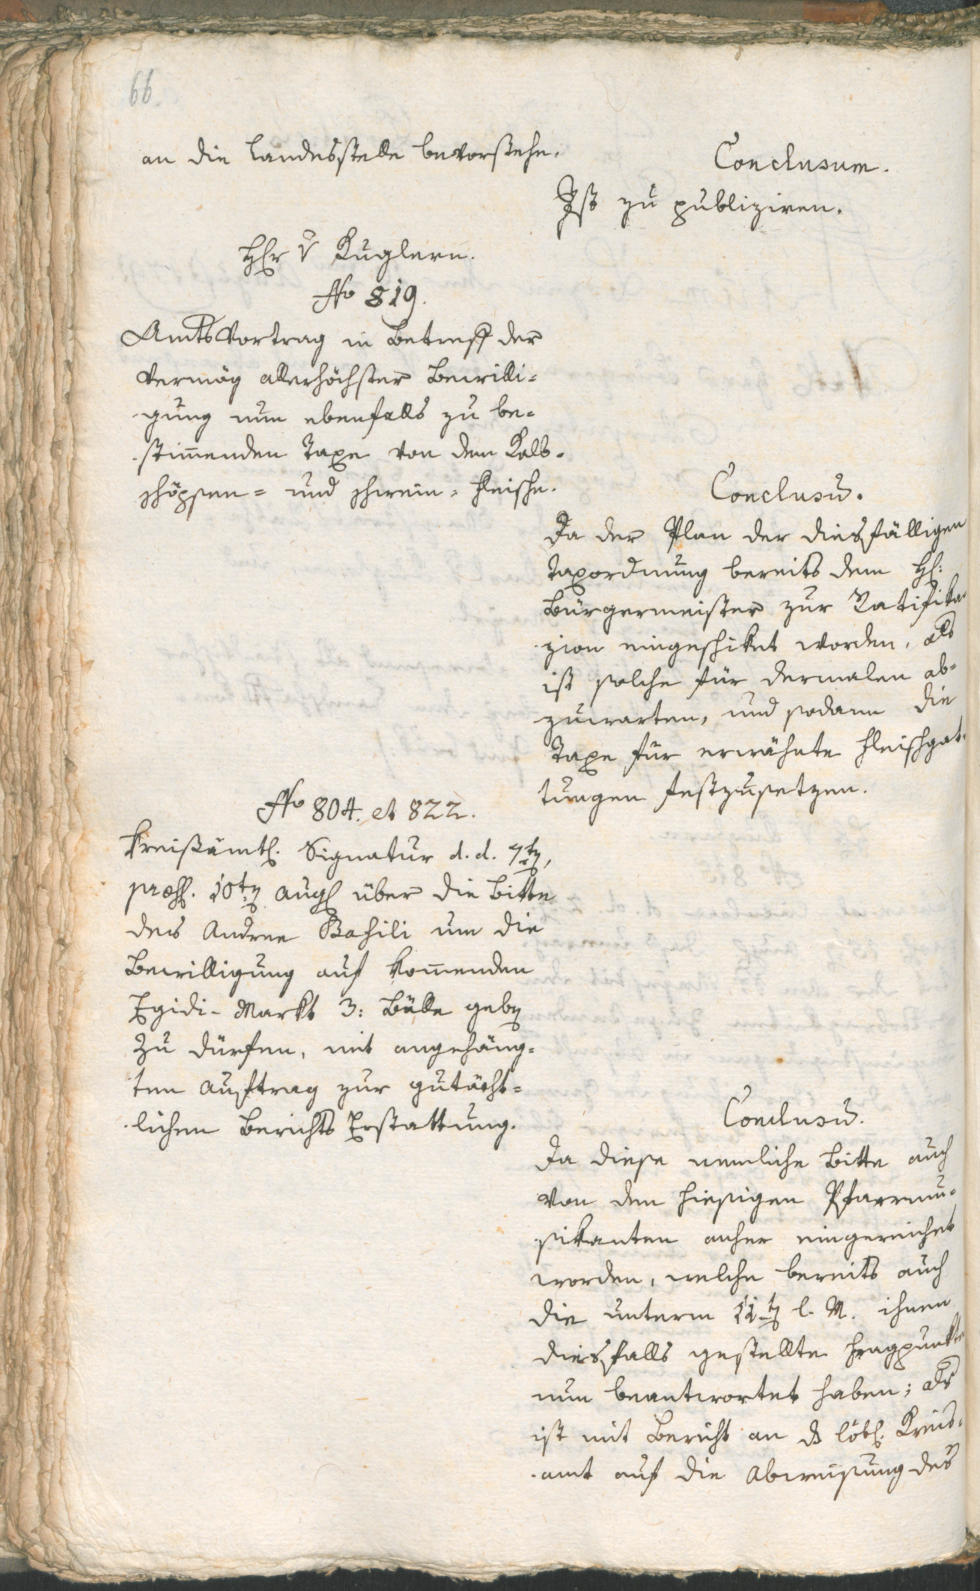 66.
an die Landesstelle bevorstehe.
Conclusum.
Ist zu publiziren.
H͞r v Kuglern.
No 819.
Amts Vortrag in Betreff der
vermög allerhöchster Bewilli-
gung nun ebenfalls zu be-
stim̅enden Taxe von dem Kalb-
schöpsen- und schwein-fleische.
Conclusū.
Da der Plan der diesfälligen
Taxordnung bereits dem H:
Bürgermeister zur Ratifika-
zion eingeschiket worden, als
ist solche für dermalen ab-
zuwarten, und sodann die
Taxe für erwähnte Fleischgat-
tungen festzusetzen.
No 804. et 822.
Kreisämtl. Signatur d. d. 7ten,
præs. 10ten Aug. über die Bitte
des Andree Bahili um die
Bewilligung auf kom̅enden
Egidi-Markt 3: Bälle geben
zu dürfen, mit angehäng-
ten Auftrag zur gutächt-
lichen Berichts Erstattung.
Conclusū.
Da diese nemliche Bitte auch
von dem hiesigen Pfarrmu-
sikanten anher eingereichet
worden, welche bereits auch
die unterm 11ten l. M. ihnen
diesfalls gestellte Fragpunkte
nun beantwortet haben; als
ist mit Bericht an ds löbl. Kreis-
amt auf die Abweisung des